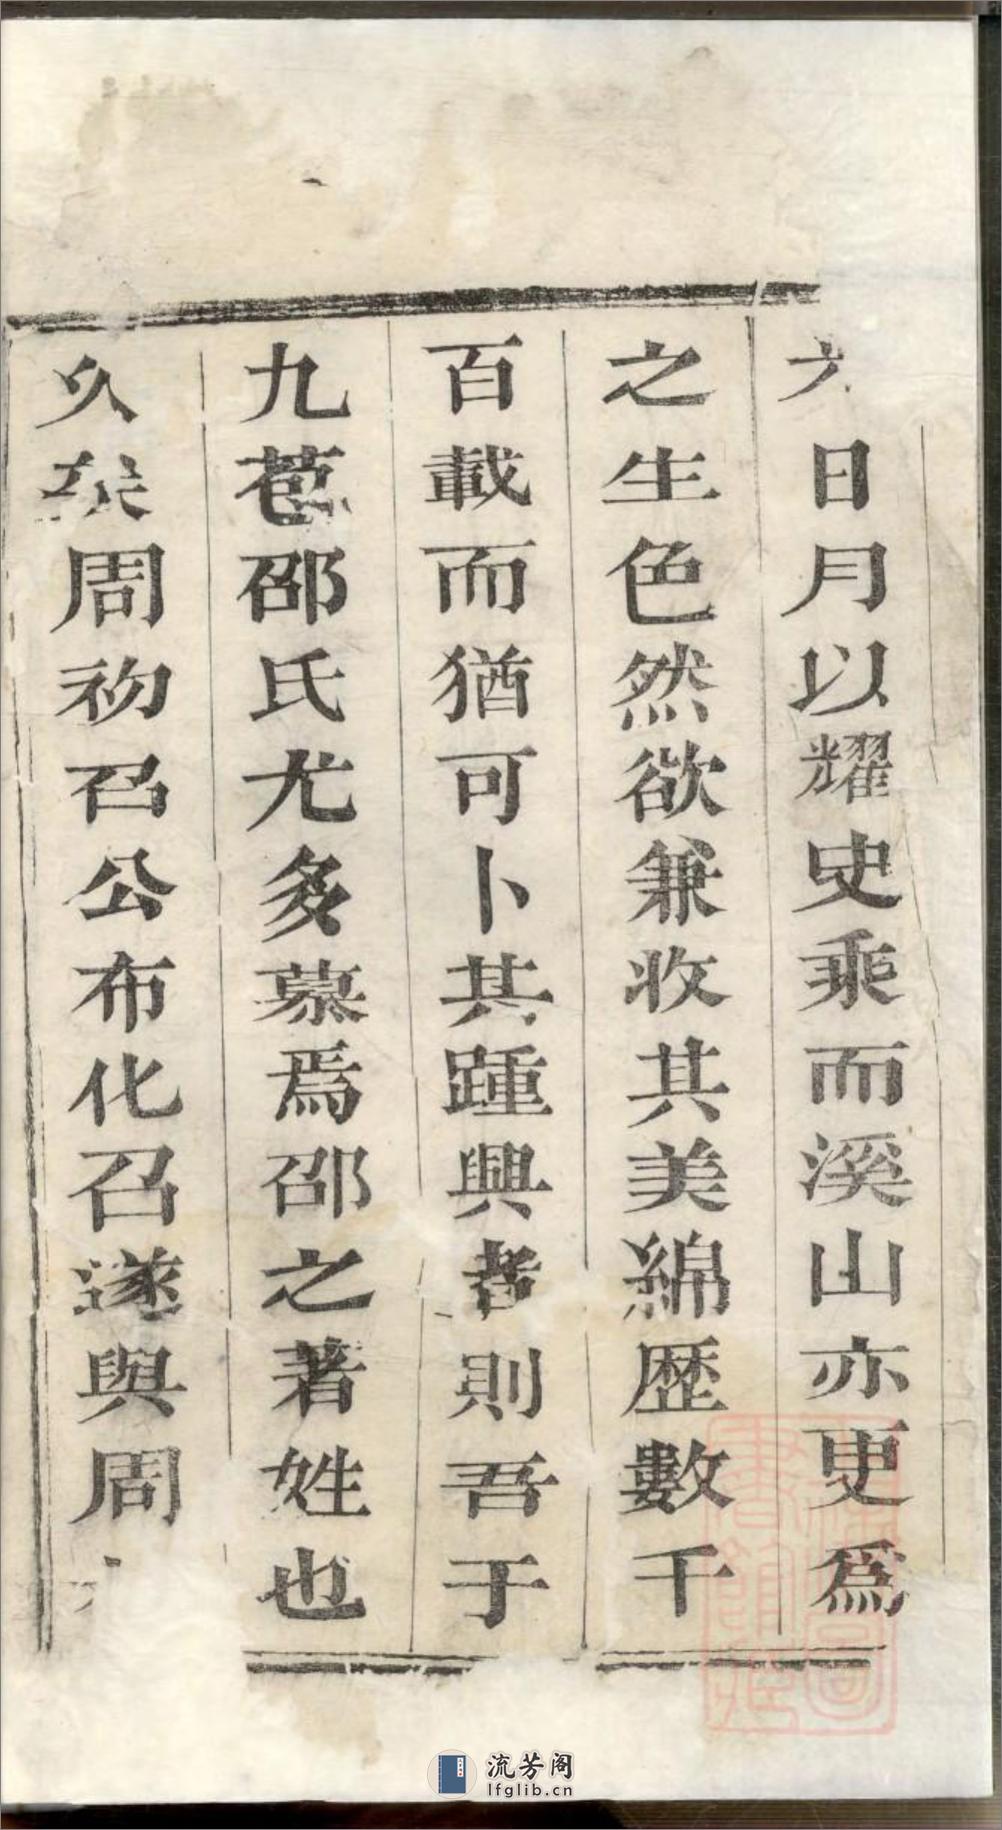 日月以耀史乘而溪山亦更爲
之生色然欲兼收其美綿歷數千
百載而猶可卜其踵興者則吾于
九苞邵氏尤多慕焉邵之著姓也
久矣周初召公布化召遂與周
流芳阁
lfglib.cn